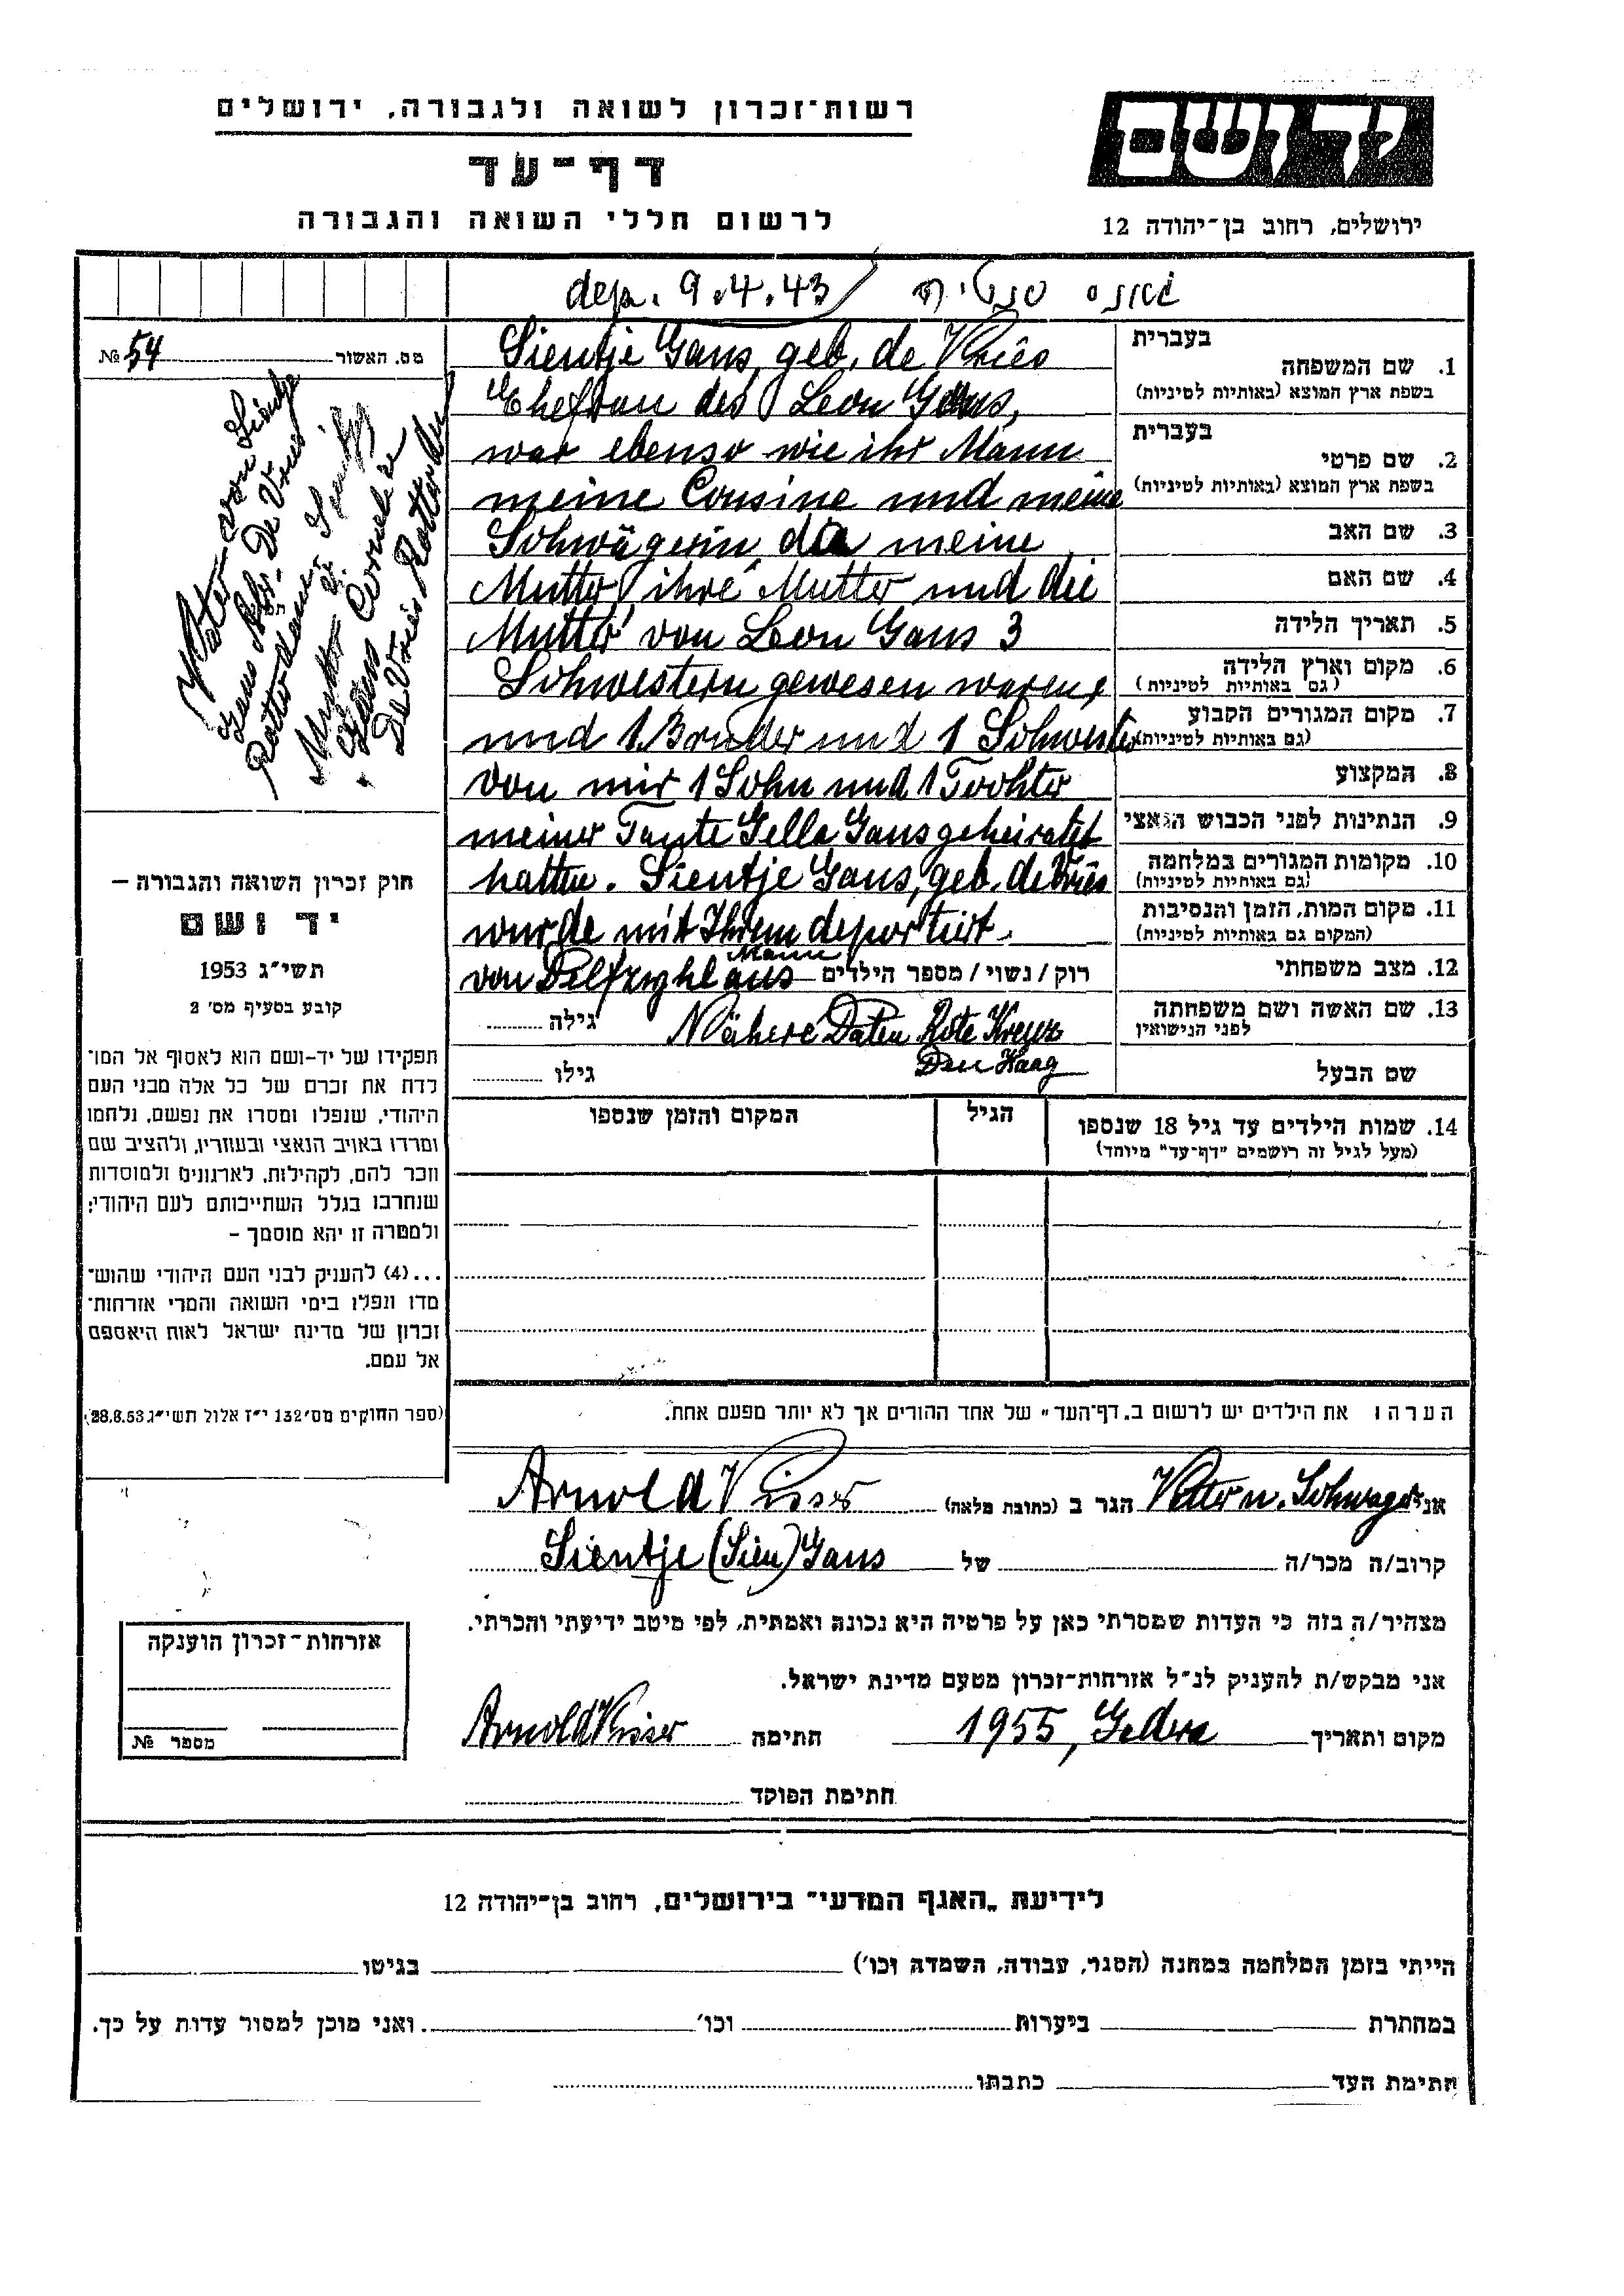 רשות־זכרון לשואה ולגבורה, ירושלים
דף־עד
לרשום חללי השואה והגבורה
יד ושם
ירושלים, רחוב בן־יהודה 12
dep. 9.4.43
גאנס
בעברית
1. שם המשפחה
בשפת ארץ המוצא (באותיות לטיניות)
בעברית
2. שם פרטי
בשפת ארץ המוצא (באותיות לטיניות)
3. שם האב
4. שם האם
5. תאריך הלידה
6. מקום וארץ הלידה
(גם באותיות לטיניות)
7. מקום המגורים הקבוע
(גם באותיות לטיניות)
8. המקצוע
9. הנתינות לפני הכבוש הנאצי
10. מקומות המגורים במלחמה
(גם באותיות לטיניות)
11. מקום המות, הזמן והנסיבות
(המקום גם באותיות לטיניות)
12. מצב משפחתי
רוק / נשוי / מספר הילדים
13. שם האשה ושם משפחתה
לפני הנישואין
גילה
שם הבעל
גילו
Sientje Gans, geb. de Vriês
Ehefrau des Leon Gans,
war ebenso wie ihr Mann
meine Cousine und meine
Schwägerin, da meine
Mutter, ihre Mutter und die
Mutter von Leon Gans 3
Schwestern gewesen waren,
und 1 Bruder und 1 Schwester
von mir 1 Sohn und 1 Tochter
meiner Tante Gella Gans geheiratet
hatten. Sientje Gans, geb. de Vriês
wurde mit Ihrem deportiert
Mann
von Delfzyhl aus
Nähere Daten Rote Kreuz
Den Haag
מס. האשור № 54
Vater von Sientje
Gans Abr. De Vries
Rotterdam
Mutter v.
Gans Cornelie
De Vries Rotterdam
חוק זכרון השואה והגבורה —
יד ושם
תשי"ג 1953
קובע בסעיף מס' 2
תפקידו של יד-ושם הוא לאסוף אל המו־
לדת את זכרם של כל אלה מבני העם
היהודי, שנפלו ומסרו את נפשם, נלחמו
ומרדו באויב הנאצי ובעוזריו, ולהציב שם
וזכר להם, לקהילות, לארגונים ולמוסדות
שנחרבו בגלל השתייכותם לעם היהודי;
ולמטרה זו יהא מוסמך –
...(4) להעניק לבני העם היהודי שהוש־
מדו ונפלו בימי השואה והמרי אזרחות־
זכרון של מדינת ישראל לאות היאספם
אל עמם.
(ספר החוקים מס' 132 י"ז אלול תשי"ג 28.8.53)
14. שמות הילדים עד גיל 18 שנספו
(מעל לגיל זה רושמים "דף־עד" מיוחד)
הגיל
המקום והזמן שנספו
הערה: את הילדים יש לרשום ב„דף־העד" של אחד ההורים אך לא יותר מפעם אחת.
אני Vetter u. Schwager הגר ב (כתובת מלאה) Arnold Visser
קרוב/ה מכר/ה של Sientje (Sien) Gans
מצהיר/ה בזה כי העדות שמסרתי כאן על פרטיה היא נכונה ואמתית, לפי מיטב ידיעתי והכרתי.
אני מבקש/ת להעניק לנ"ל אזרחות־זכרון מטעם מדינת ישראל.
מקום ותאריך 1955, Gedera חתימה Arnold Visser
חתימת הפוקד
אזרחות־זכרון הוענקה
מספר №
לידיעת „האגף המדעי" בירושלים, רחוב בן־יהודה 12
הייתי בזמן המלחמה במחנה (הסגר, עבודה, השמדה וכו') בגיטו
במחתרת ביערות וכו' ואני מוכן למסור עדות על כך.
חתימת העד כתבתו